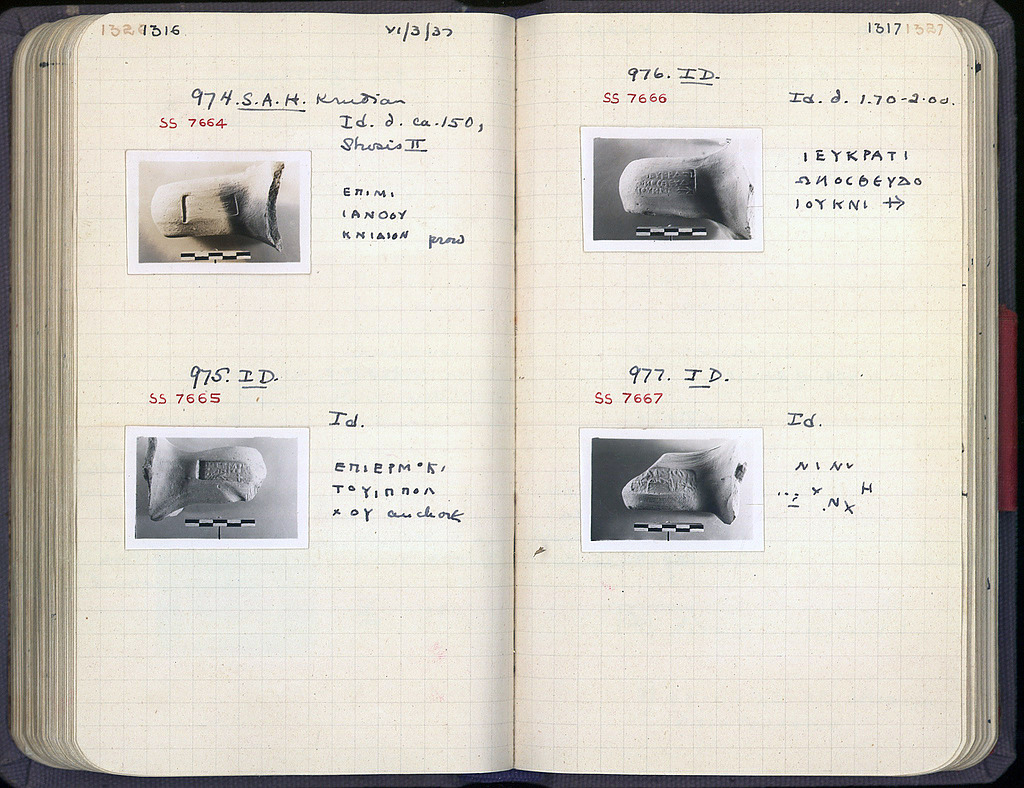 1316
VI/3/37
974. S.A.H. Knidian
SS 7664
Id. d. ca. 150,
Strosis II
ΕΠΙΜΙ
ΙΑΝΟΟΥ
ΚΝΙΔΙΟΝ prow
975. ID.
SS 7665
Id.
ΕΠΙΕΡΜΟΚΙ
ΤΟΥΙΠΠΟΛ
ΧΟΥ anchor
1317 1327
976. ID.
SS 7666
Id. d. 1.70-2.00.
ΙΕΥΚΡΑΤΙ
ΙΟΥΚΝΙ
977. ID.
SS 7667
Id.
ΝΙΝΥ